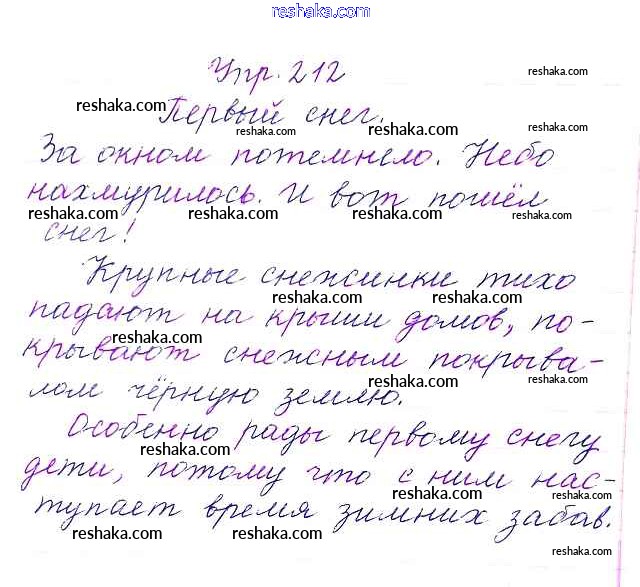 reshaka.com
Упр. 212
reshaka.com reshaka.com
Первый снег.
reshaka.com reshaka.com reshaka.com
За окном потемнело. Небо
reshaka.com reshaka.com reshaka.com
нахмурилось. И вот пошёл
reshaka.com reshaka.com reshaka.com
снег!
Крупные снежинки тихо
reshaka.com reshaka.com
падают на крыши домов, по-
reshaka.com reshaka.com
крывают снежным покрыва-
reshaka.com reshaka.com
лом чёрную землю.
Особенно рады первому снегу
reshaka.com reshaka.com
дети, потому что с ним нас-
reshaka.com reshaka.com
тупает время зимних забав.
reshaka.com reshaka.com reshaka.com
reshaka.com